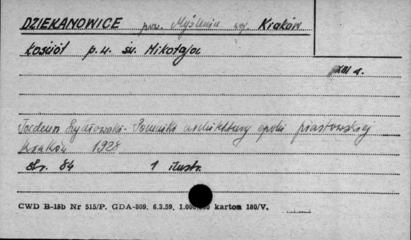 DZIEKANOWICE pow. Myślenice woj. Kraków
kościół p.w. św. Mikołaja
XIII w.
Szydłowski - Pomniki architektury epoki piastowskiej
Kraków 1928
str. 84 1 ilustr.
CWD B-15b Nr 515/P. GDA-809. 6.3.59, karton 180/V.